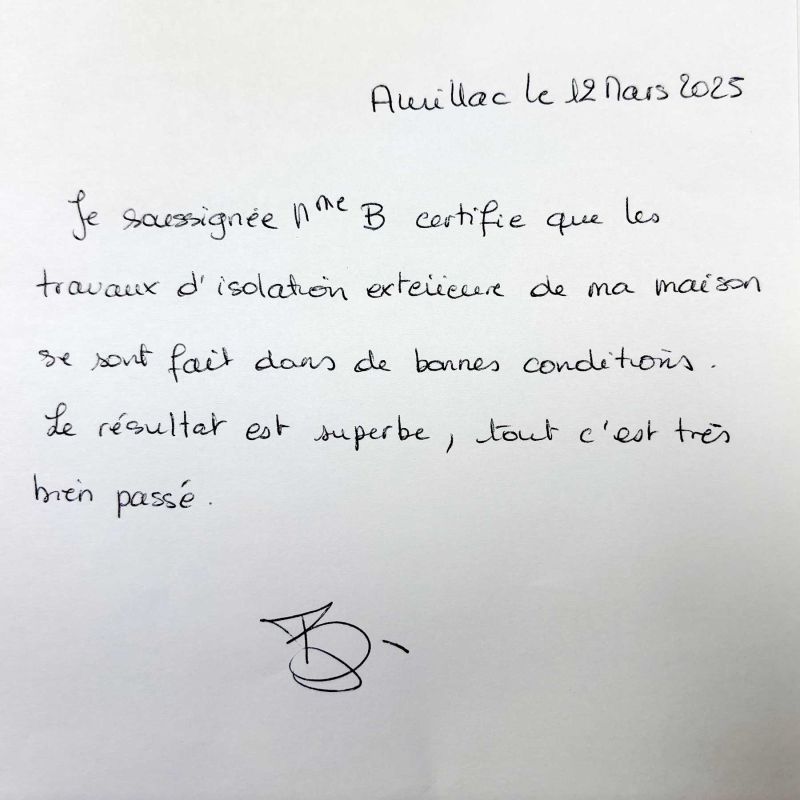 Aurillac le 12 Mars 2025
Je soussignée Mme B certifie que les
travaux d'isolation exterieure de ma maison
se sont fait dans de bonnes conditions.
Le résultat est superbe, tout c'est très
bien passé.